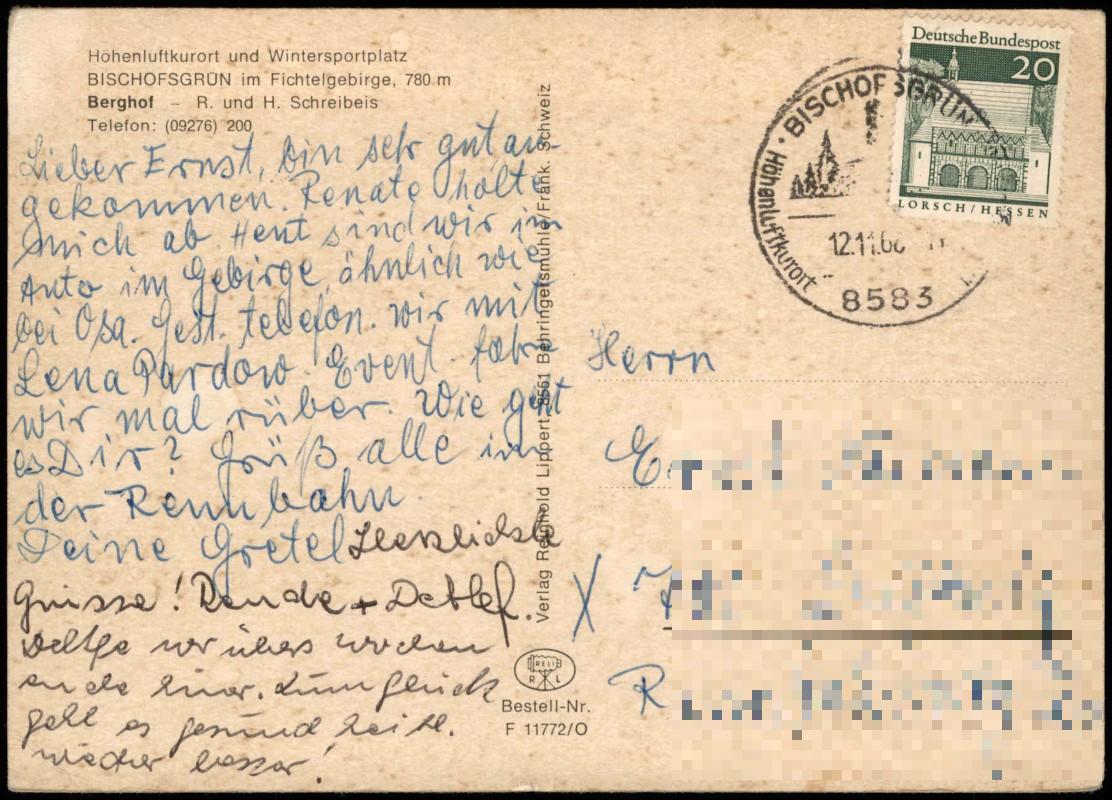 Höhenluftkurort und Wintersportplatz
BISCHOFSGRÜN im Fichtelgebirge, 780 m
Berghof – R. und H. Schreibeis
Telefon: (09276) 200
Lieber Ernst, bin sehr gut an-
gekommen. Renate holte
mich ab. Heut sind wir im
Auto im Gebirge, ähnlich wie
bei Osa. Gest. telefon. wir mit
Lena Pardow. Event. fahrn
wir mal rüber. Wie geht
es Dir? Grüß alle in
der Rennbahn.
Deine Gretel Herzlichste
Grüsse! + Detlef.
wir übers wochen
ende hier. zum glück
geht es gesund heitl.
wieder besser!
Verlag Reinhold Lippert, 8551 Behringersmühle/Fränk. Schweiz
RELI
R L
Bestell-Nr.
F 11772/O
Deutsche Bundespost
20
LORSCH/HESSEN
BISCHOFSGRÜN
Höhenluftkurort
12.11.68
8583
Herrn